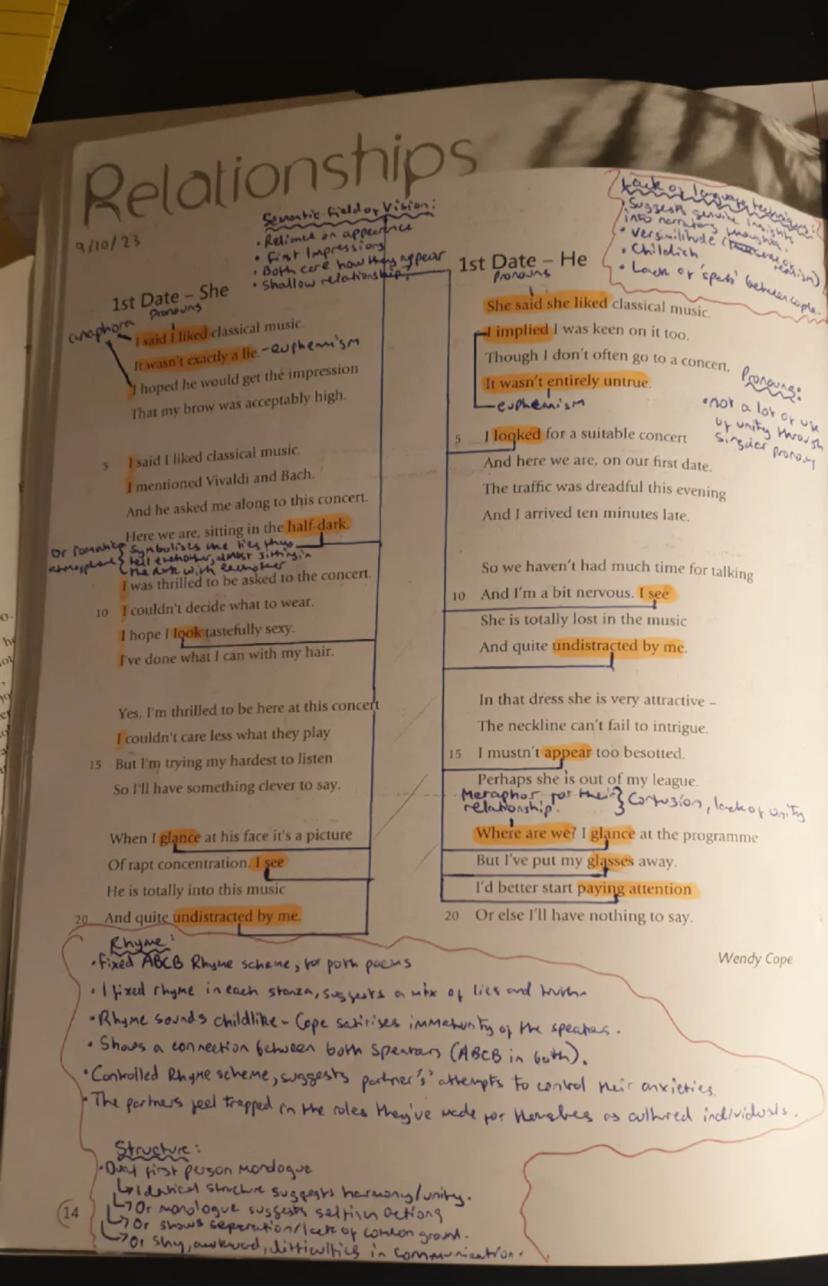 Relationships
9/10/23
Semantic Field of Vision:
• Reliance on appearance
• First Impressions
• Both care how they appear
• Shallow relationship.
Lack of language techniques:
• Suggests genuine insights
into narrators thoughts.
• Verisimilitude ( realism)
• Childish
• Lack of 'spark' between couple.
1st Date – She
Pronouns
anaphora
I said I liked classical music.
It wasn't exactly a lie. - euphemism
I hoped he would get the impression
That my brow was acceptably high.
5 I said I liked classical music.
I mentioned Vivaldi and Bach.
And he asked me along to this concert.
Here we are, sitting in the half-dark.
Or romantic atmosphere
Symbolises the lies they
tell eachother, whilst sitting in
the dark with eachother
I was thrilled to be asked to the concert.
10 I couldn't decide what to wear.
I hope I look tastefully sexy.
I've done what I can with my hair.
Yes, I'm thrilled to be here at this concert
I couldn't care less what they play
15 But I'm trying my hardest to listen
So I'll have something clever to say.
When I glance at his face it's a picture
Of rapt concentration. I see
He is totally into this music
20 And quite undistracted by me.
1st Date – He
Pronouns
She said she liked classical music.
I implied I was keen on it too.
Though I don't often go to a concert,
It wasn't entirely untrue.
euphemism
Pronouns:
• not a lot of use
of unity through
singular pronoun
5 I looked for a suitable concert
And here we are, on our first date.
The traffic was dreadful this evening
And I arrived ten minutes late.
So we haven't had much time for talking
10 And I'm a bit nervous. I see
She is totally lost in the music
And quite undistracted by me.
In that dress she is very attractive –
The neckline can't fail to intrigue.
15 I mustn't appear too besotted.
Perhaps she is out of my league.
Metaphor for their relationship. } Confusion, lack of unity
Where are we? I glance at the programme
But I've put my glasses away.
I'd better start paying attention
20 Or else I'll have nothing to say.
Wendy Cope
Rhyme:
• Fixed ABCB Rhyme scheme, for both poems
• 1 fixed rhyme in each stanza, suggests a mix of lies and truth.
• Rhyme sounds childlike - Cope satirises immaturity of the speakers.
• Shows a connection between both speakers (ABCB in both).
• Controlled Rhyme scheme, suggests partner's' attempts to control their anxieties.
• The partners feel trapped in the roles they've made for themselves as cultured individuals.
Structure:
• Dual first person monologue
↳ Identical structure suggests harmony/unity.
↳ Or monologue suggests selfish actions
↳ Or shows seperation/lack of common ground.
↳ Or shy, awkward, difficulties in communication.
14